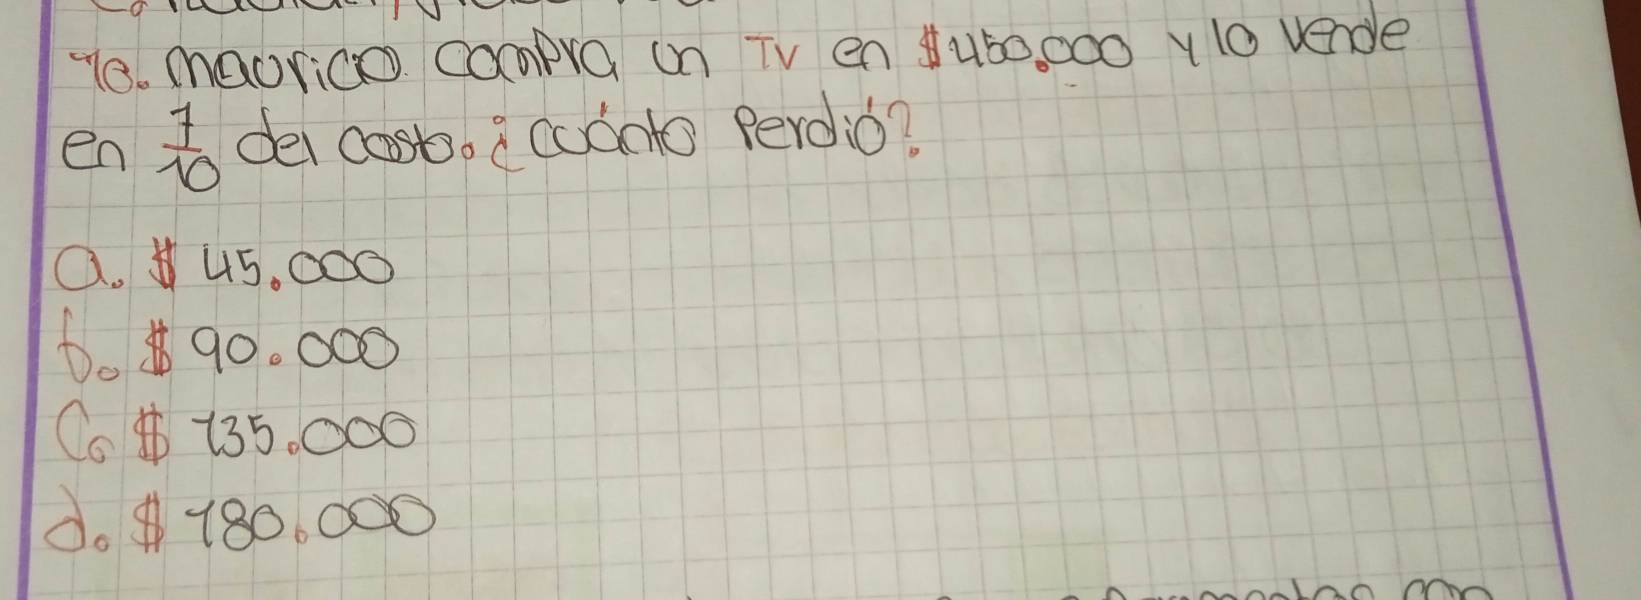 10. Mauricio compra un TV en $450.000 y lo vende
en 7/10 del costo. ¿cuánto Perdió?
a. $ 45.000
b. $ 90.000
c. $ 135.000
d. $ 180.000